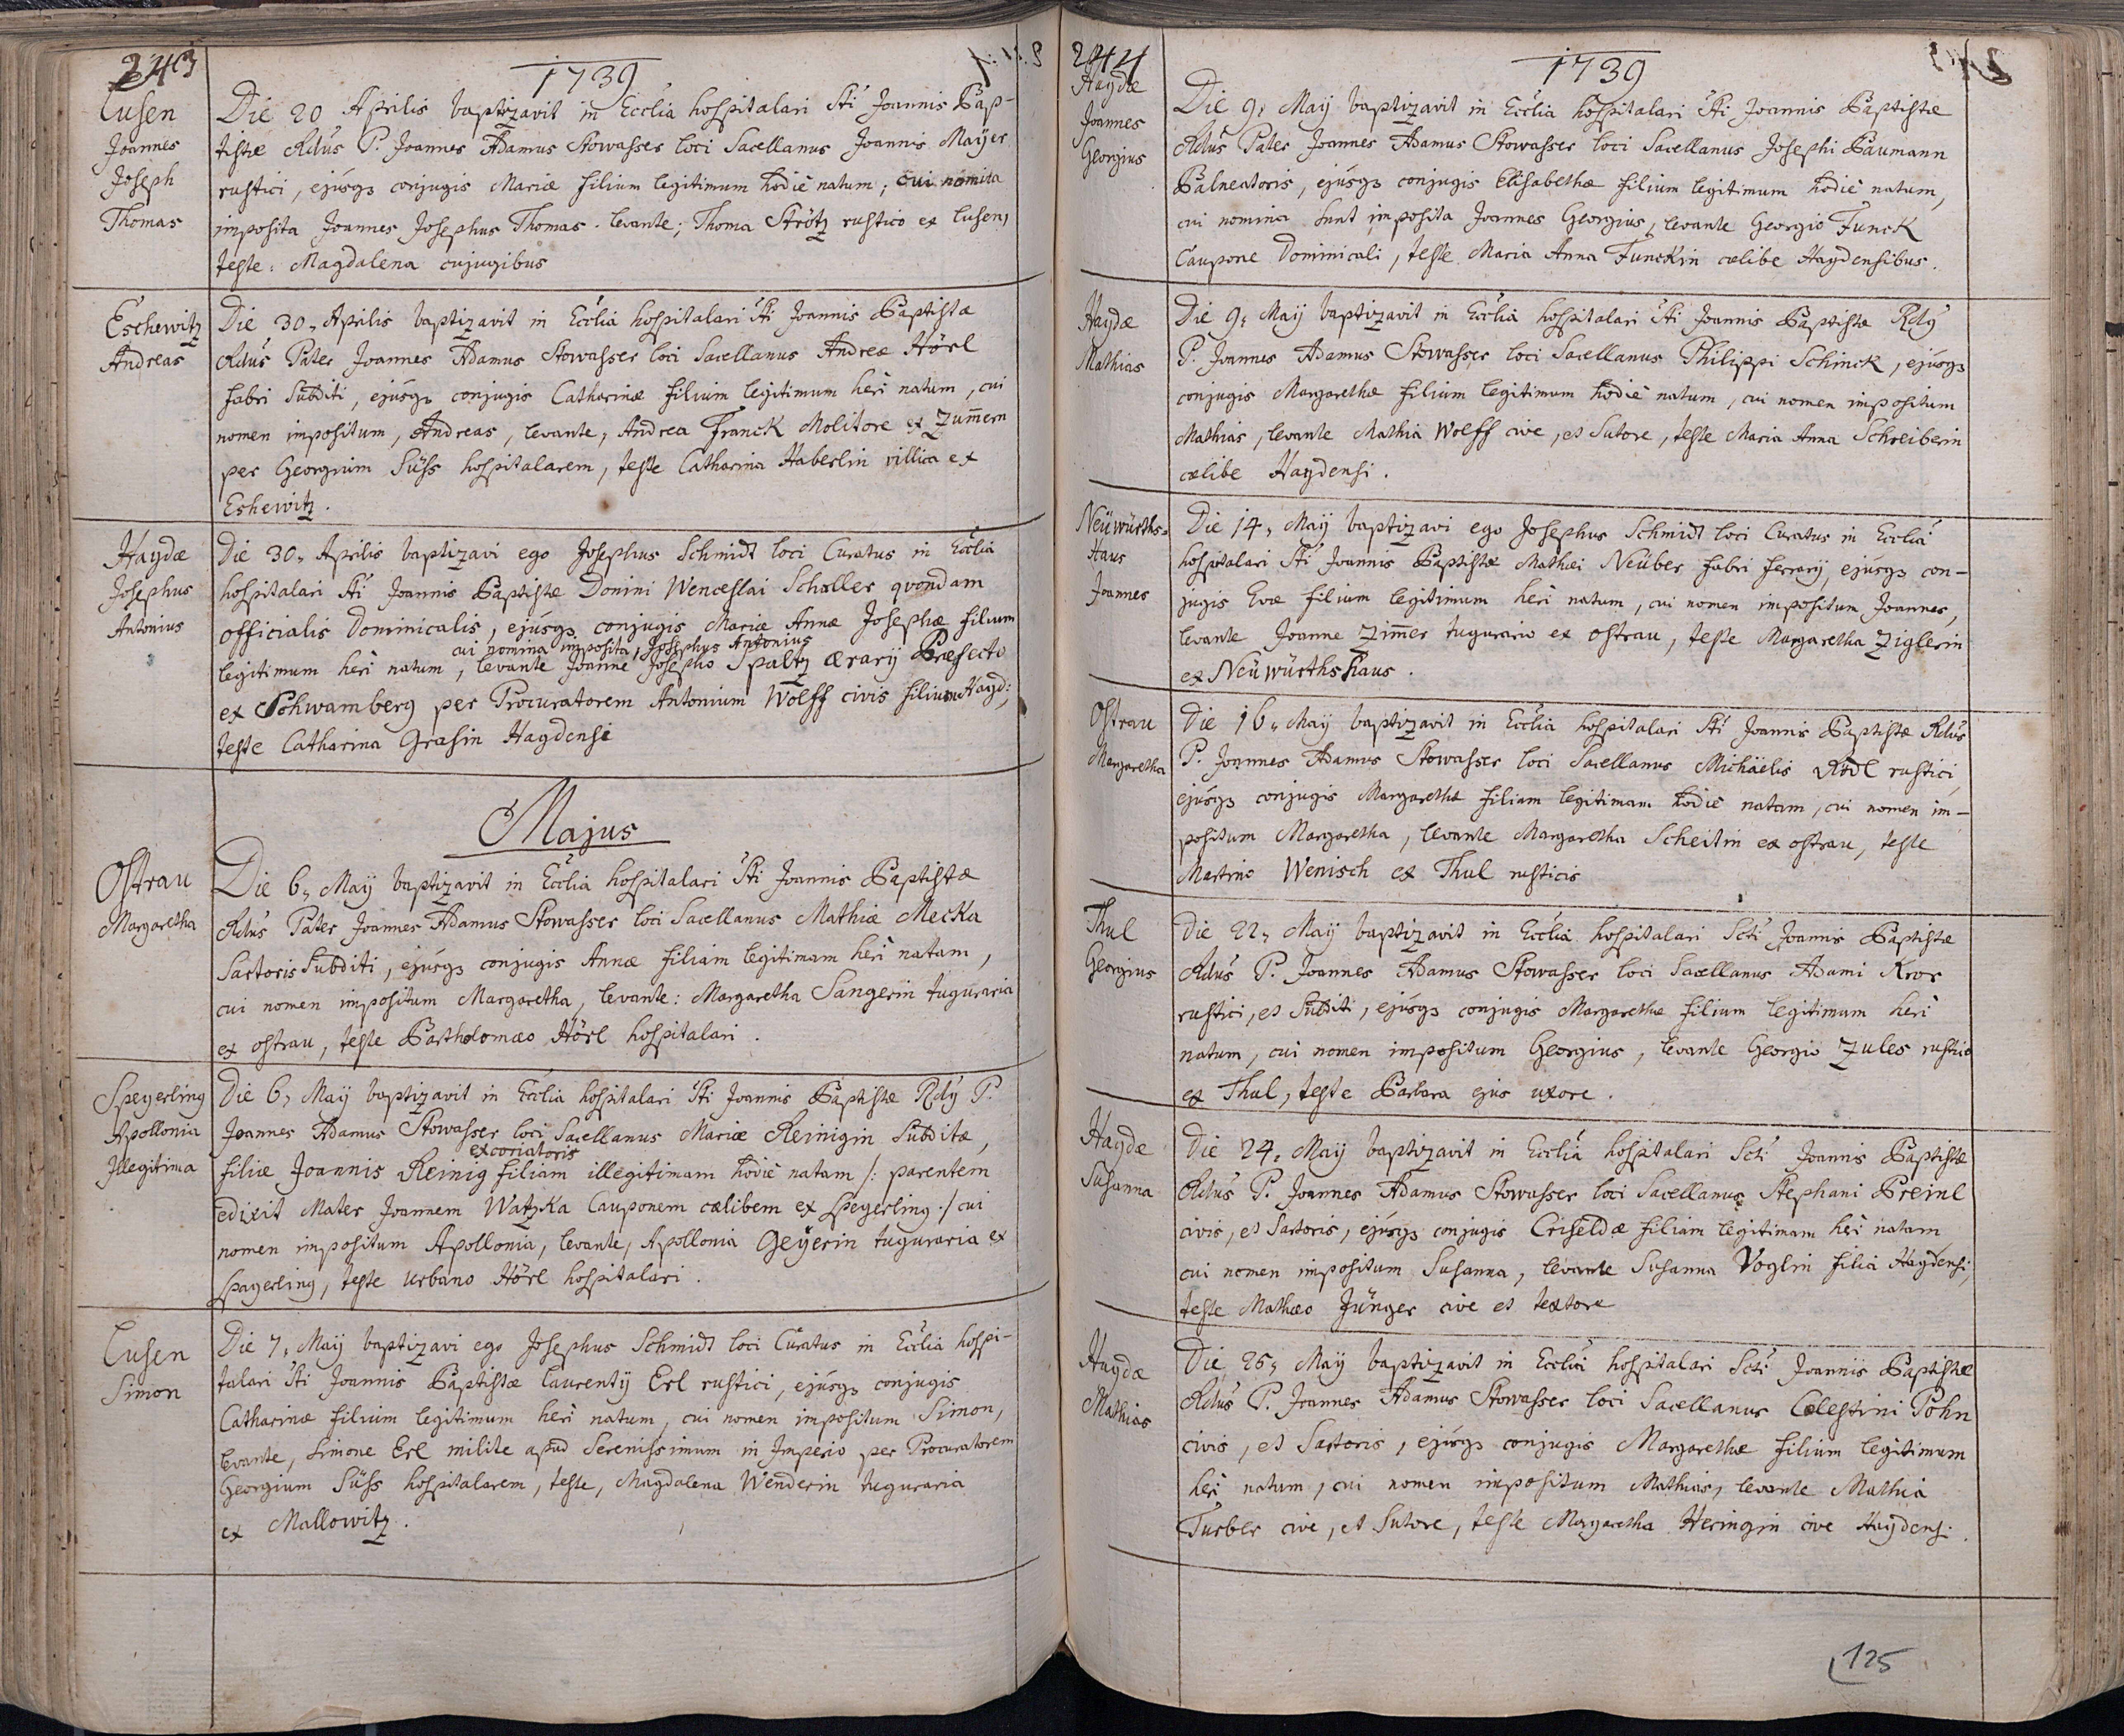 243
1739
Lusen
Joannes
Joseph
Thomas
Die 20 Aprilis baptizavit in Ecclia hospitalari Sti Joannis Bap-
tistæ Rdus P. Joannes Adamus Stowasser loci Sacellanus Joannis Mayer
rustici, ejusqz conjugis Mariæ filium legitimum hodie natum; cui nomina
imposita Joannes Josephus Thomas. levante; Thoma Strötz rustico ex Lusen,
teste: Magdalena cujugibus
Eschewitz
Andreas
Die 30. Aprilis baptizavit in Ecclia hospitalari Sti Joannis Baptistæ
Rdus Pater Joannes Adamus Stowasser loci Sacellanus Andreæ Hörl
fabri Subditi, ejusqz conjugis Catharinæ filium legitimum heri natum, cui
nomen impositum, Andreas, levante, Andrea Franck Molitore ex Zum̄ern
per Georgium Süss hospitalarem, teste Catharina Haberlin villica ex
Eshewitz.
Haydæ
Josephus
Antonius
Die 30. Aprilis baptizavi ego Josephus Schmidt loci Curatus in Ecclia
hospitalari Sti Joannis Baptistæ Domini Wenceslai Schaller qvondam
officialis Dominicalis, ejusqz conjugis Mariæ Annæ Josephæ filium
cui nomina imposita, Josephus Antonius
legitimum heri natum, levante Joanne Josepho Spaltz ærarij Præfecto
ex Schwamberg per Procuratorem Antonium Wolff civis filium Hayd:,
teste Catharina Grasin Haydensi
Majus
Ostrau
Margaretha
Die 6. Maij baptizavit in Ecclia hospitalari Sti Joannis Baptistæ
Rdus Pater Joannes Adamus Stowasser loci Sacellanus Mathiæ Mecka
Sartoris Subditi, ejusqz conjugis Annæ filiam legitimam heri natam,
cui nomen impositum Margaretha, levante: Margaretha Sangerin tuguraria
ex ostrau, teste Bartholomæo Hörl hospitalari.
Speyerling
Apollonia
Illegitima
Die 6, Maij baptizavit in Ecclia hospitalari Sti Joannis Baptistæ Rdy P.
Joannes Adamus Stowasser loci Sacellanus Mariæ Reinigin Subditæ,
excoriatoris
filiæ Joannis Reinig filiam illegitimam hodie natam /: parentem
edixit Mater Joannem Watzka Cauponem cælibem ex Speyerling :/ cui
nomen impositum Apollonia, levante, Apollonia Geÿerin tuguraria ex
Spayerling, teste Urbano Hörl hospitalari.
Lusen
Simon
Die 7, Maij baptizavi ego Josephus Schmidt loci Curatus in Ecclia hospi-
talari Sti Joannis Baptistæ Laurentij Erl rustici, ejusqz conjugis
Catharinæ filium legitimum heri natum, cui nomen impositum Simon,
levante, Simone Erl milite apud Serenissimum in Imperio per Procuratorem
Georgium Süss hospitalarem, teste, Magdalena Wenderin tuguraria
ex Mallowitz.
244
1739
Haydæ
Joannes
Georgius
Die 9, Maij baptizavit in Ecclia hospitalari Sti Joannis Baptistæ
Rdus Pater Joannes Adamus Stowasser loci Sacellanus Josephi Baumann
Balneatoris, ejusqz conjugis Elisabethæ filium legitimum hodie natum,
cui nomina sunt imposita Joannes Georgius, levante Georgio Funck
Caupone Dominicali, teste Maria Anna Funckin cælibe Haydensibus.
Haydæ
Mathias
Die 9, Maij baptizavit in Ecclia hospitalari Sti Joannis Baptistæ Rdy
P. Joannes Adamus Stowasser loci Sacellanus Philippi Schinck, ejusqz
conjugis Margarethæ filium legitimum hodie natum, cui nomen impositum
Mathias, levante Mathia Wolff cive, et Sutore, teste Maria Anna Schreiberin
cælibe Haydensi.
Neüwürths-
Haus
Joannes
Die 14, Maij baptizavi ego Josephus Schmidt loci Curatus in Ecclia
hospitalari Sti Joannis Baptistæ Mathæi Neüber fabri ferrarij, ejusqz con-
jugis Evæ filium legitimum heri natum, cui nomen impositum, Joannes,
levante Joanne Zim̄er tugurario ex ostrau, teste Margaretha Ziglerin
ex Neüwürthshaus.
Ostrau
Margaretha
Die 16, Maij baptizavit in Ecclia hospitalari Sti Joannis Baptistæ Rdus
P. Joannes Adamus Stowasser loci Sacellanus Michäelis Rödl rustici
ejusqz conjugis Margarethæ filiam legitimam hodie natam, cui nomen im-
positum Margaretha, levante Margaretha Scheitin ex ostrau, teste
Martino Wenisch ex Thul rusticis
Thul
Georgius
Die 22, Maij baptizavit in Ecclia hospitalari Scti Joannis Baptistæ
Rdus P. Joannes Adamus Stowasser loci Sacellanus Adami Kror
rustici, et Subditi, ejusqz conjugis Margarethæ filium legitimum heri
natum, cui nomen impositum Georgius, levante Georgio Zules rustico
ex Thul, teste Barbara ejus uxore.
Haydæ
Susanna
Die 24, Maij baptizavit in Ecclia hospitalari Scti Joannis Baptistæ
Rdus P. Joannes Adamus Stowasser loci Sacellanus Stephani Breinl
civis, et Sartoris, ejusqz conjugis Criseldæ filiam legitimam heri natam
cui nomen impositum Susanna, levante Susanna Voglin filia Haydensi,
teste Mathæo Jünger cive et textore
Haydæ
Mathias
Die 25, Maij baptizavit in Ecclia hospitalari Scti Joannis Baptistæ
Rdus P. Joannes Adamus Stowasser loci Sacellanus Cælestini Pohn
civis, et Sartoris, ejusqz conjugis Margarethæ filium legitimum
heri natum, cui nomen impositum Mathias, levante Mathia
Turber cive, et Sutore, teste Margaretha Heringin cive Haydensi.
125